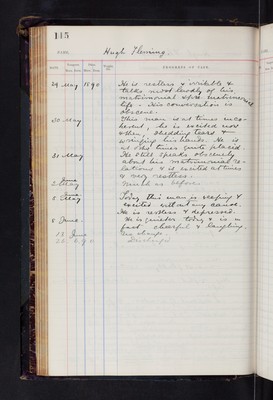 115
NAME, Hugh Fleming
DATE. PROGRESS OF CASE.
29 May 1890 He is restless & irritable &
talks most lewdly of his
matrimonial & pre matrimonial
life. His conversation is
obscene.
30 May This man is at times inco-
herent, he is excited now
& then, shedding tears &
wringing his hands. He is
at other times quite placid.
31 May He still speaks obscenely
about his matrimonial re-
lations & is excited at times
& very restless.
2 June Much as before.
5 Today this man is weeping &
excited without any cause.
He is restless & depressed.
8 June He is quieter today & is in
fact cheerful & laughing.
13 June Discharge
Discharged